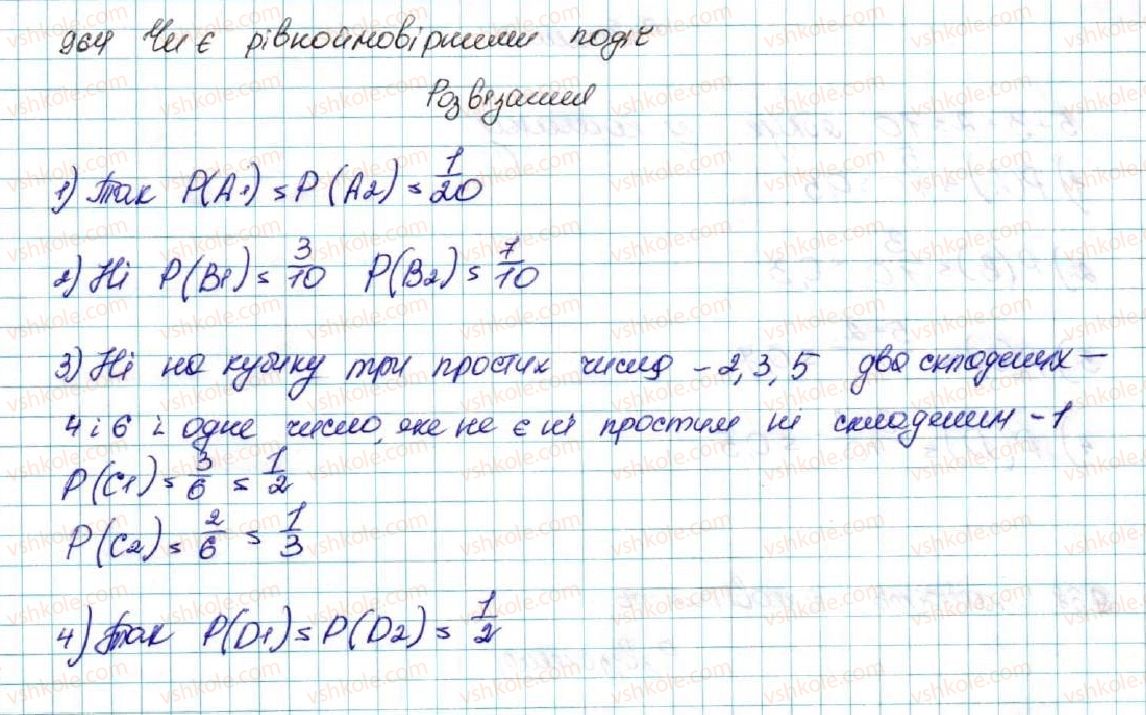 964 Чи є рівноймовірними події
Розв'язання
1) Так P(A1) = P(A2) = 1/20
2) Ні P(B1) = 3/10 P(B2) = 7/10
3) Ні на кубику три простих числа – 2, 3, 5 два складених –
4 і 6 і одне число, яке не є ні простим ні складеним – 1
P(C1) = 3/6 = 1/2
P(C2) = 2/6 = 1/3
4) Так P(D1) = P(D2) = 1/2